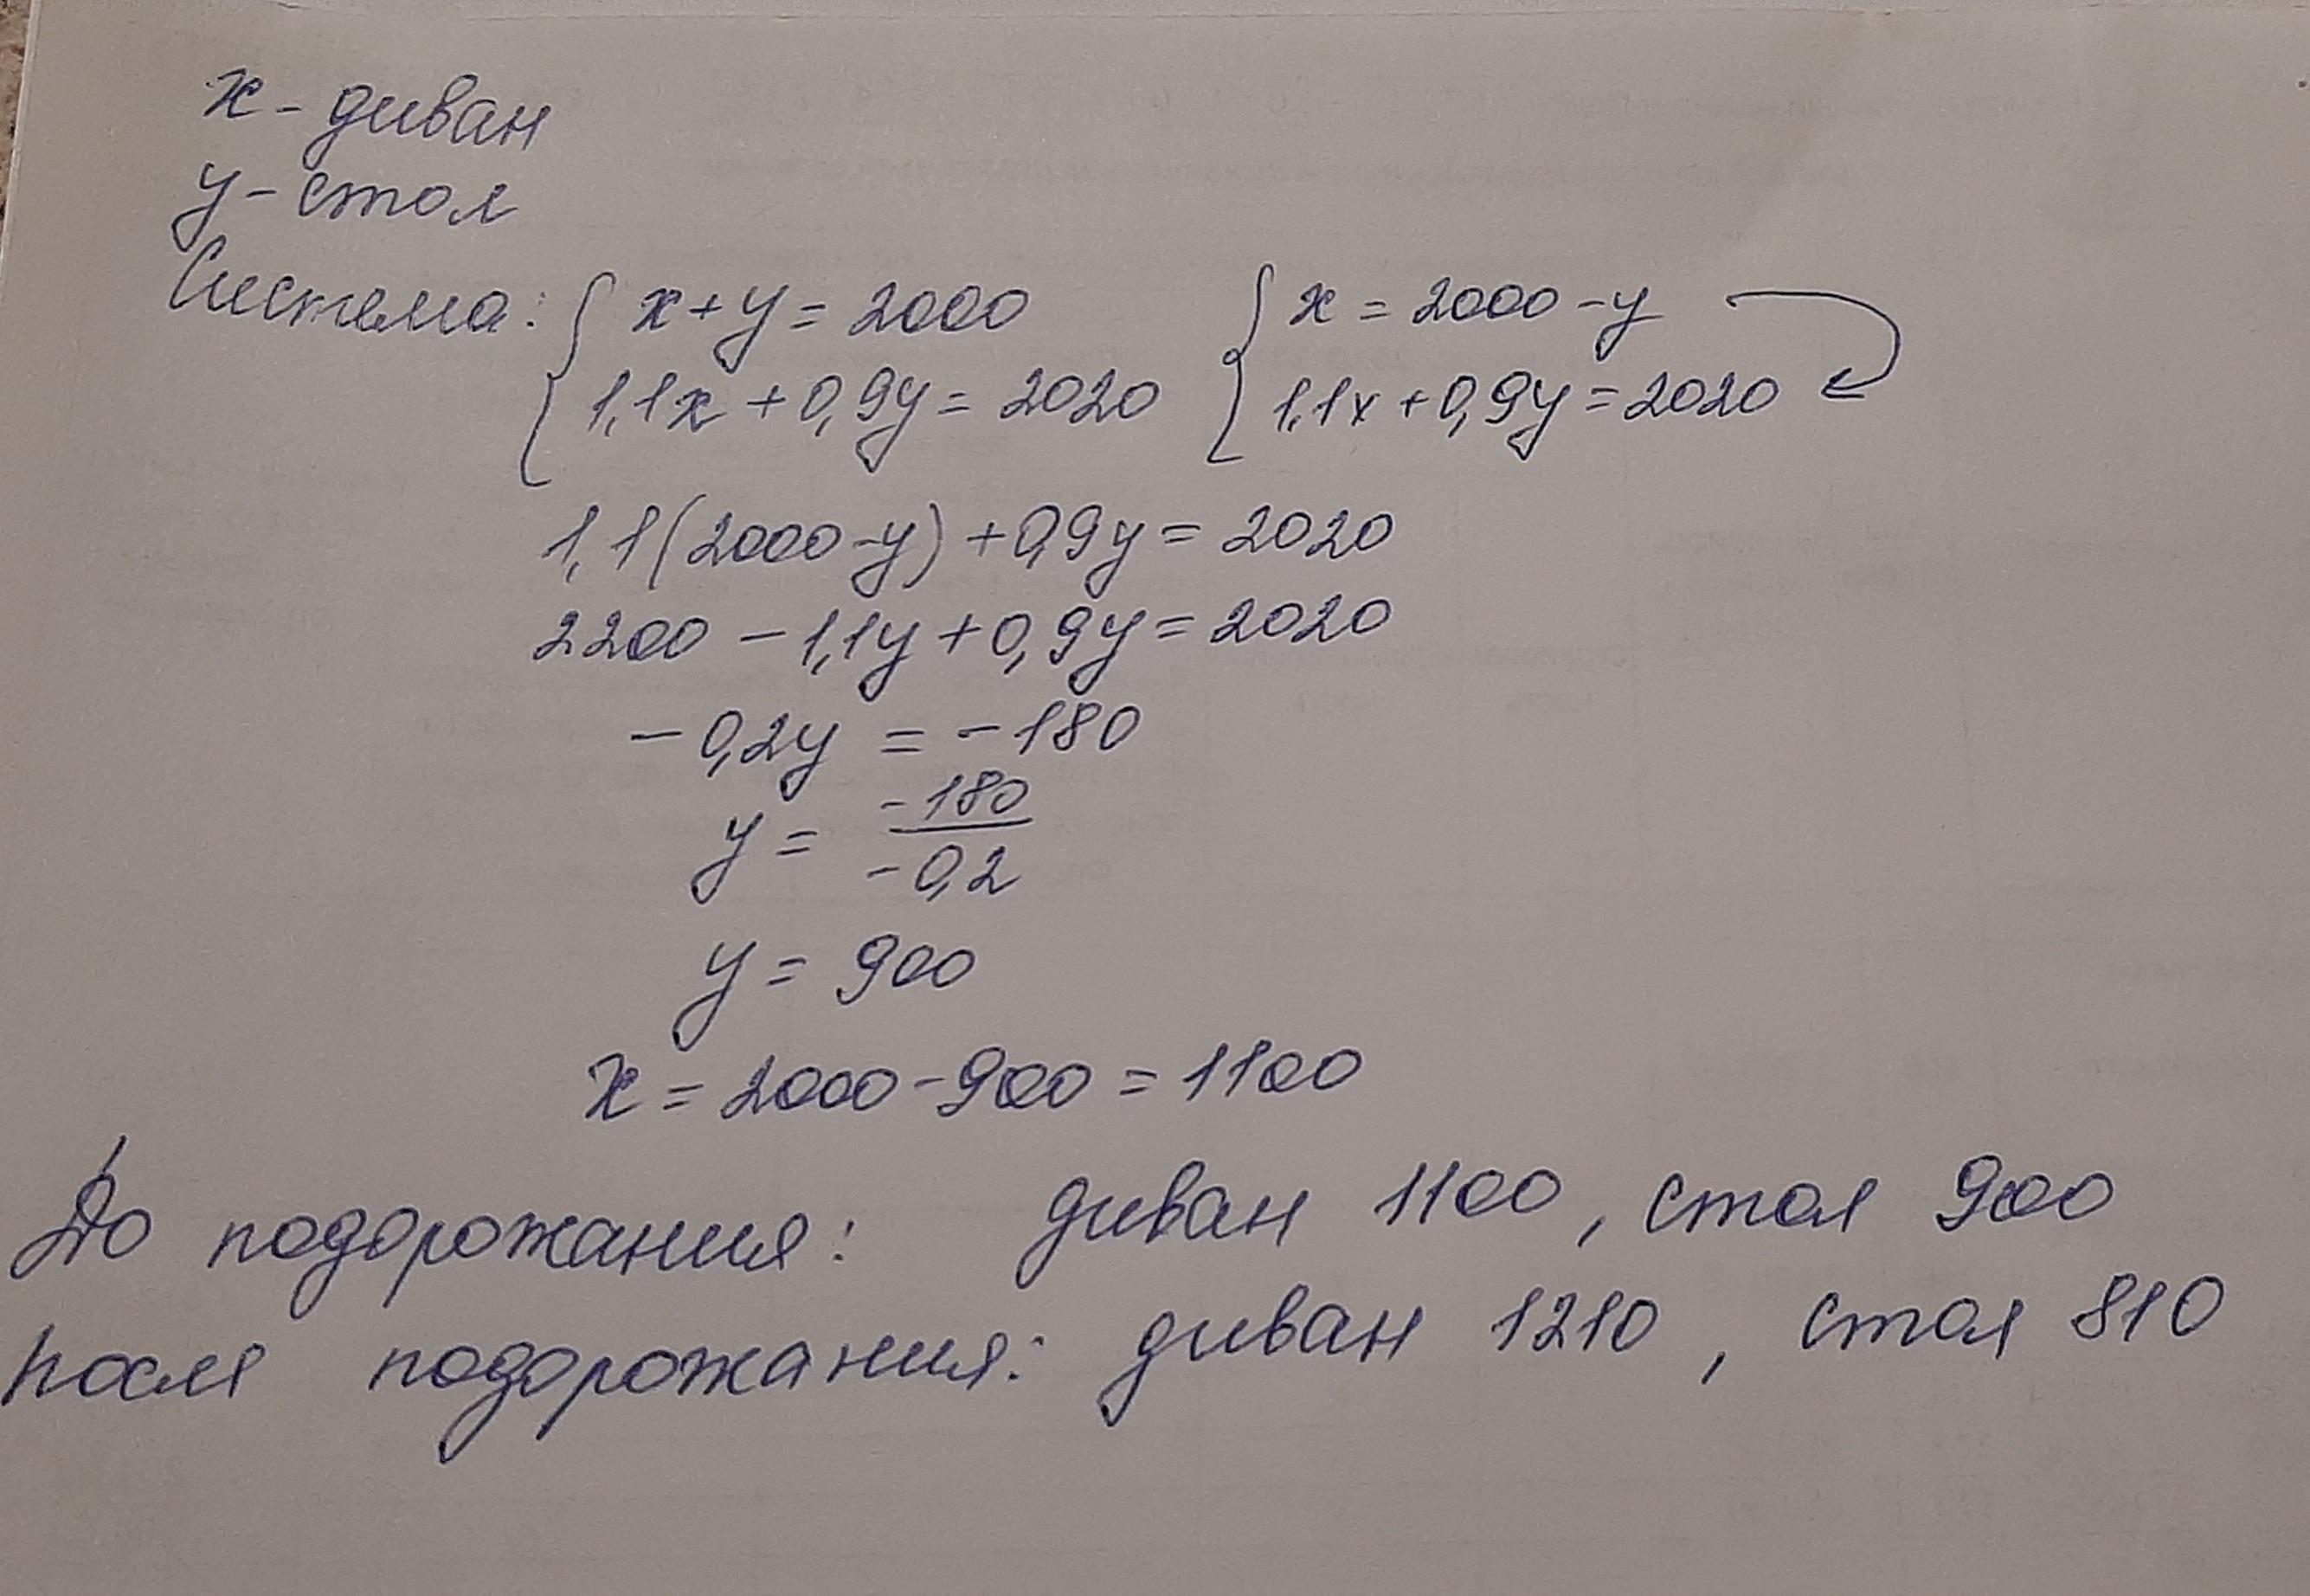 x - диван
y - стол
Система: { x + y = 2000 { x = 2000 - y
1,1x + 0,9y = 2020 1,1x + 0,9y = 2020
1,1(2000 - y) + 0,9y = 2020
2200 - 1,1y + 0,9y = 2020
- 0,2y = - 180
y = -180 / -0,2
y = 900
x = 2000 - 900 = 1100
До подорожания: диван 1100, стол 900
После подорожания: диван 1210, стол 810